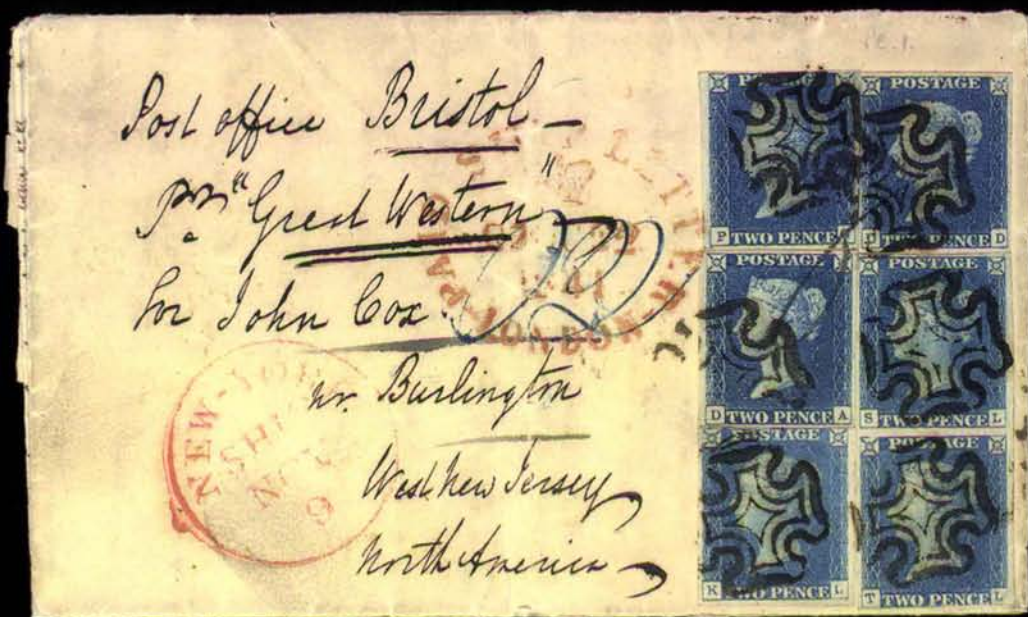 Post office Bristol —
pr "Great Western"
for John Cox.
nr. Burlington
West New Jersey
North America
PAID
LETTER
LONDON
NEW-YOR
SHI
NOV
9
POSTAGE
TWO PENCE
POSTAGE
TWO PENCE
D
POSTAGE
D TWO PENCE A
POSTAGE
S TWO PENCE L
POSTAGE
K TWO PENCE L
POSTAGE
T TWO PENCE L